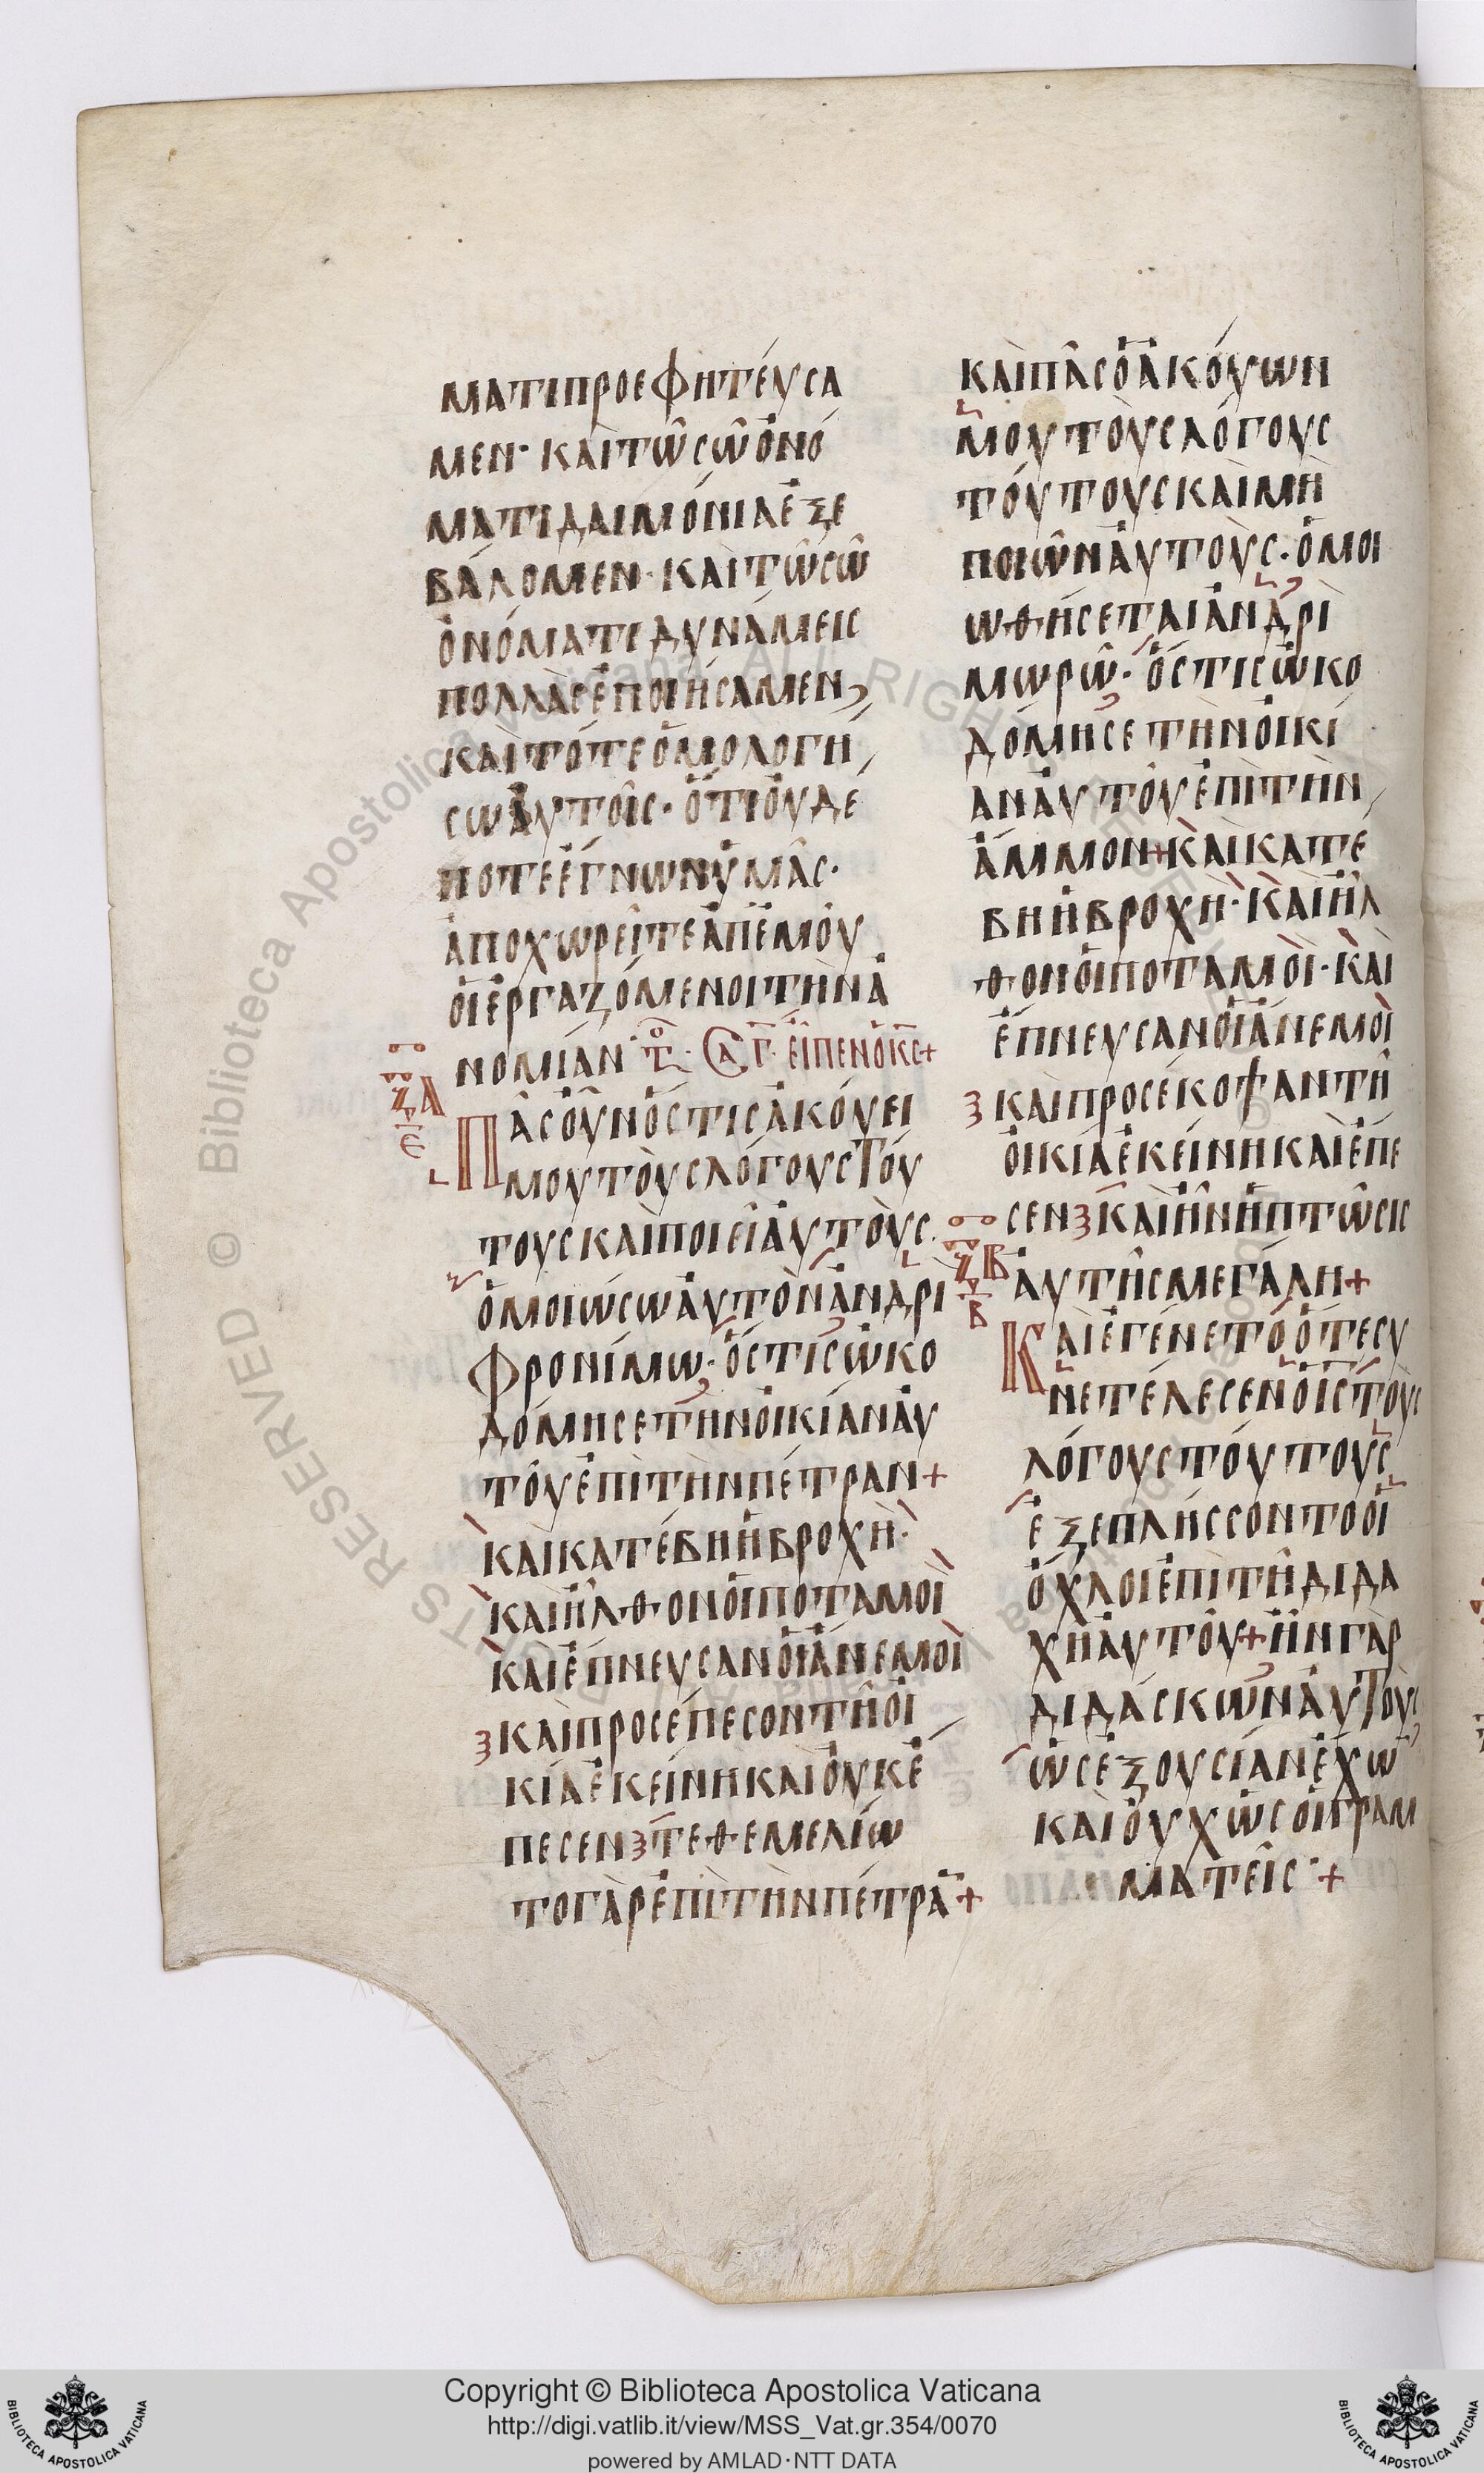 ΜΑΤΙΠΡΟΕΦΗΤΕΥΣΑ
ΜΕΝ· ΚΑΙΤΩΣΩΟΝΟ
ΜΑΤΙΔΑΙΜΟΝΙΑΕΞΕ
ΒΑΛΟΜΕΝ· ΚΑΙΤΩΣΩ
ΟΝΟΜΑΤΙΔΥΝΑΜΕΙΣ
ΠΟΛΛΑΣΕΠΟΙΗΣΑΜΕΝ
ΚΑΙΤΟΤΕΟΜΟΛΟΓΗ
ΣΩΑΥΤΟΙΣ· ΟΤΙΟΥΔΕ
ΠΟΤΕΕΓΝΩΝΥΜΑΣ·
ΑΠΟΧΩΡΕΙΤΕΑΠΕΜΟΥ
ΟΙΕΡΓΑΖΟΜΕΝΟΙΤΗΝΑ
ΝΟΜΙΑΝ· ΤΟ· ΣΑ Γ· ΕΙΠΕΝΟΚΣ+
ΞΑ
Ε
ΠΑΣΟΥΝΟΣΤΙΣΑΚΟΥΕΙ
ΜΟΥΤΟΥΣΛΟΓΟΥΣΤΟΥ
ΤΟΥΣΚΑΙΠΟΙΕΙΑΥΤΟΥΣ·
ΟΜΟΙΩΣΩΑΥΤΟΝΑΝΔΡΙ
ΦΡΟΝΙΜΩ· ΟΣΤΙΣΩΚΟ
ΔΟΜΗΣΕΤΗΝΟΙΚΙΑΝΑΥ
ΤΟΥΕΠΙΤΗΝΠΕΤΡΑΝ+
ΚΑΙΚΑΤΕΒΗΗΒΡΟΧΗ·
ΚΑΙΗΛΘΟΝΟΙΠΟΤΑΜΟΙ
ΚΑΙΕΠΝΕΥΣΑΝΟΙΑΝΕΜΟΙ
ΚΑΙΠΡΟΣΕΠΕΣΟΝΤΗΟΙ
ΚΙΑΕΚΕΙΝΗΚΑΙΟΥΚΕ
ΠΕΣΕΝ ΤΕΘΕΜΕΛΙΩ
ΤΟΓΑΡΕΠΙΤΗΝΠΕΤΡΑ+
ΚΑΙΠΑΣΟΑΚΟΥΩΝ
ΜΟΥΤΟΥΣΛΟΓΟΥΣ
ΤΟΥΤΟΥΣΚΑΙΜΗ
ΠΟΙΩΝΑΥΤΟΥΣ· ΟΜΟΙ
ΩΘΗΣΕΤΑΙΑΝΔΡΙ
ΜΩΡΩ· ΟΣΤΙΣΩΚΟ
ΔΟΜΗΣΕΤΗΝΟΙΚΙ
ΑΝΑΥΤΟΥΕΠΙΤΗΝ
ΑΜΜΟΝ+ΚΑΙΚΑΤΕ
ΒΗΗΒΡΟΧΗ· ΚΑΙΗΛ
ΘΟΝΟΙΠΟΤΑΜΟΙ· ΚΑΙ
ΕΠΝΕΥΣΑΝΟΙΑΝΕΜΟΙ
ΚΑΙΠΡΟΣΕΚΟΨΑΝΤΗ
ΟΙΚΙΑΕΚΕΙΝΗΚΑΙΕΠΕ
ΣΕΝ ΚΑΙΗΝΗΠΤΩΣΙΣ
ΑΥΤΗΣΜΕΓΑΛΗ+
ΞΒ
Β
ΚΑΙΕΓΕΝΕΤΟΟΤΕΣΥ
ΝΕΤΕΛΕΣΕΝΟΙΣΤΟΥΣ
ΛΟΓΟΥΣΤΟΥΤΟΥΣ
ΕΞΕΠΛΗΣΣΟΝΤΟΟΙ
ΟΧΛΟΙΕΠΙΤΗΔΙΔΑ
ΧΗΑΥΤΟΥ+ΗΝΓΑΡ
ΔΙΔΑΣΚΩΝΑΥΤΟΥΣ
ΩΣΕΞΟΥΣΙΑΝΕΧΩ
ΚΑΙΟΥΧΩΣΟΙΓΡΑΜ
ΜΑΤΕΙΣ +
Biblioteca Apostolica Vaticana. ALL RIGHTS RESERVED ©
Copyright © Biblioteca Apostolica Vaticana
http://digi.vatlib.it/view/MSS_Vat.gr.354/0070
powered by AMLAD·NTT DATA
BIBLIOTECA APOSTOLICA VATICANA
BIBLIOTECA APOSTOLICA VATICANA